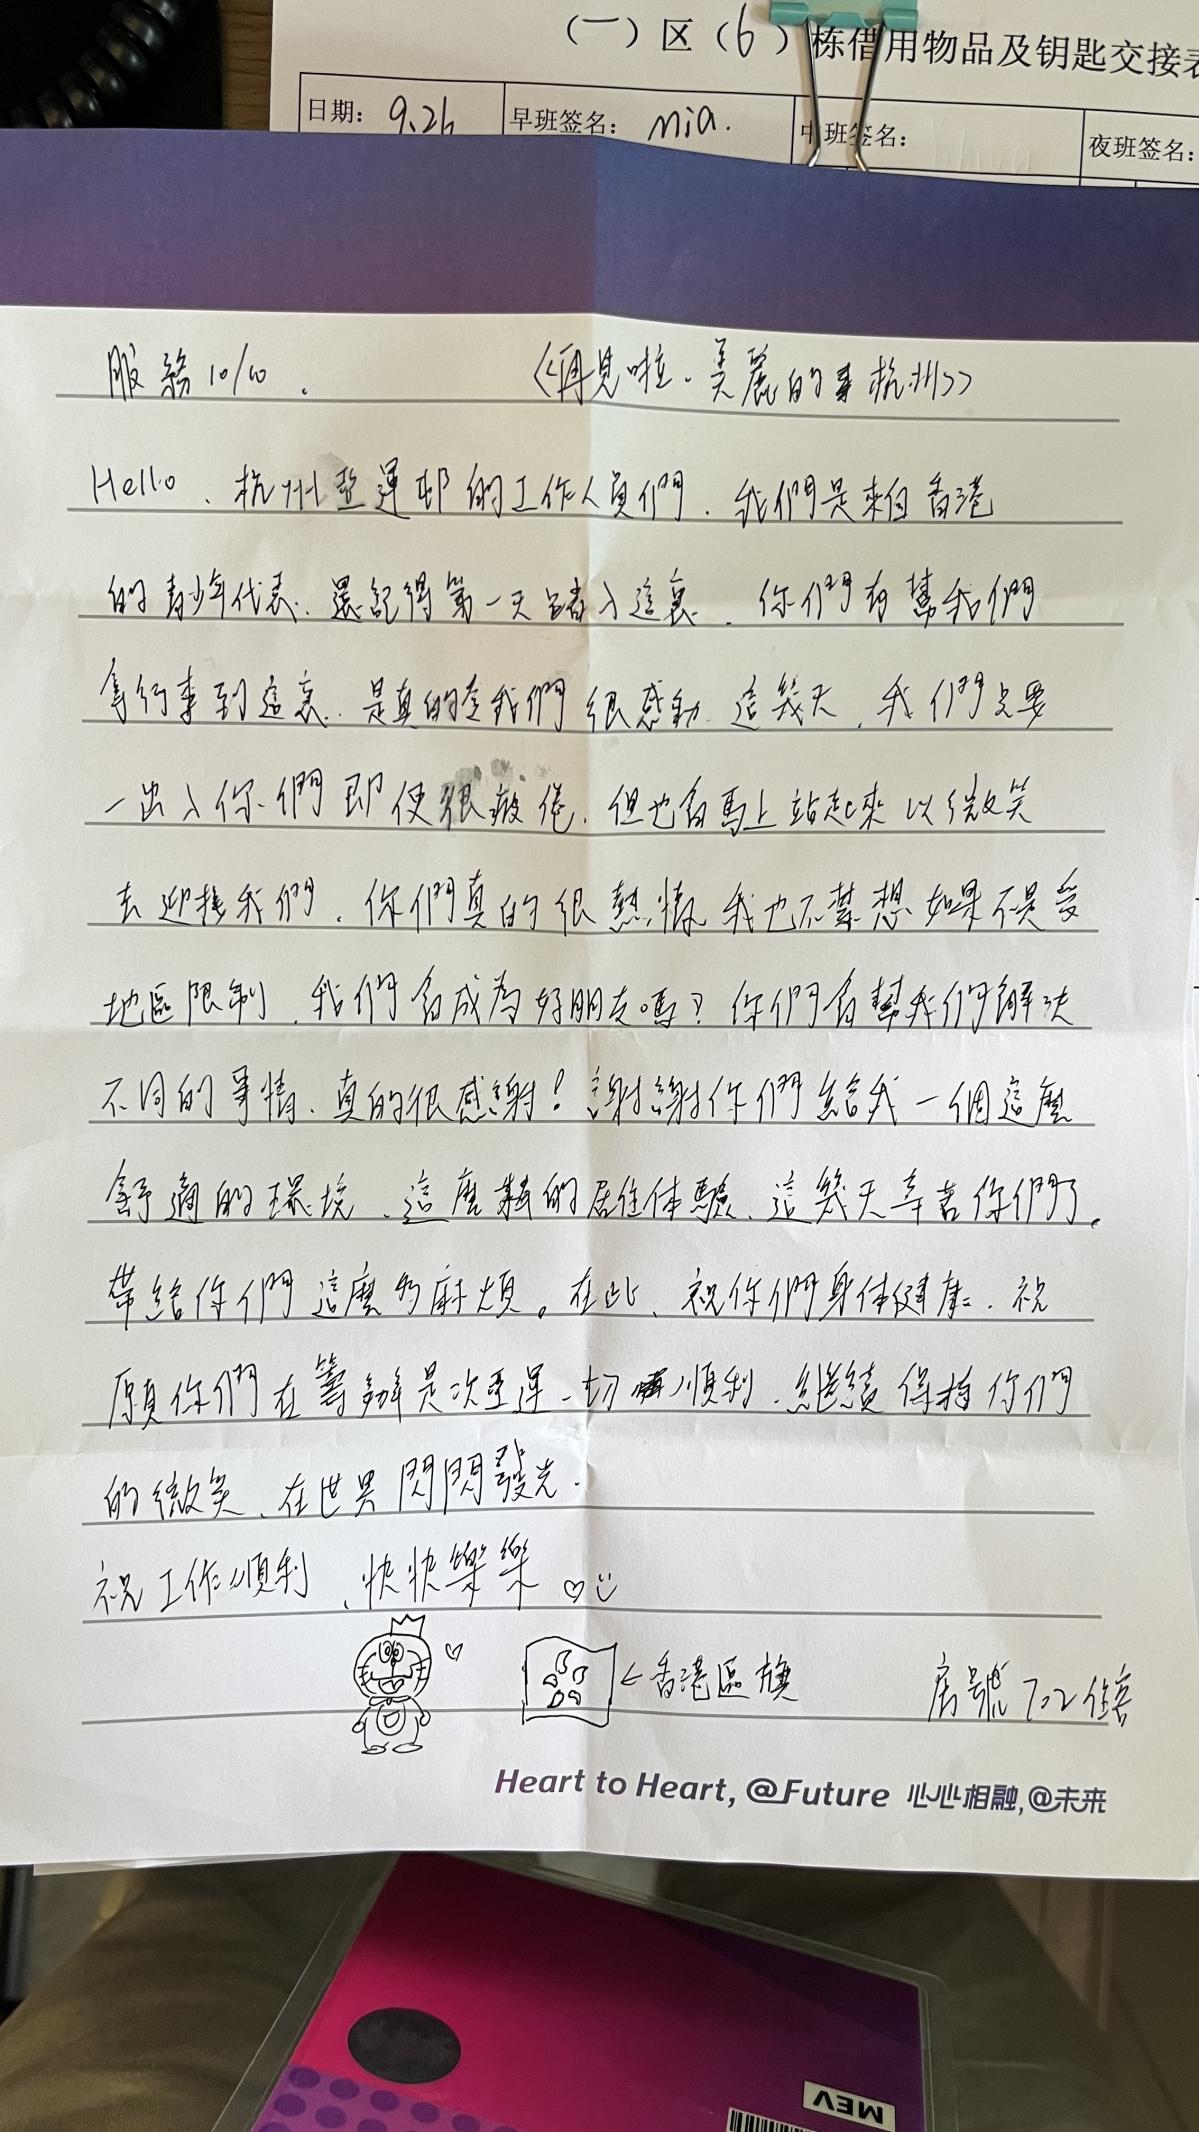 （一）区（6）栋借用物品及钥匙交接表
日期：9.26 早班签名：mia. 中班签名： 夜班签名：
服務10/10. 《再見啦、美麗的杭州》
Hello、杭州亞運邨的工作人員們、我們是來自香港
的青少年代表、還記得第一天踏入這裏、你們有幫我們
拿行李到這裏、是真的令我們很感動、這幾天、我們只要
一出入你們即使很疲倦、但也會馬上站起來以微笑
去迎接我們、你們真的很熱情、我也不禁想如果不是受
地區限制、我們會成為好朋友嗎？你們有幫我們解決
不同的事情、真的很感謝！謝謝你們給我一個這麼
舒適的環境、這麼棒的居住体驗、這幾天辛苦你們了。
帶給你們這麼多麻煩。在此、祝你們身体健康、祝
願你們在籌辦是次亞運一切順利、繼續保持你們
的微笑、在世界閃閃發光.
祝工作順利、快快樂樂♡
←香港區旗 房號702住客
Heart to Heart, @Future 心心相融,@未来
MEV